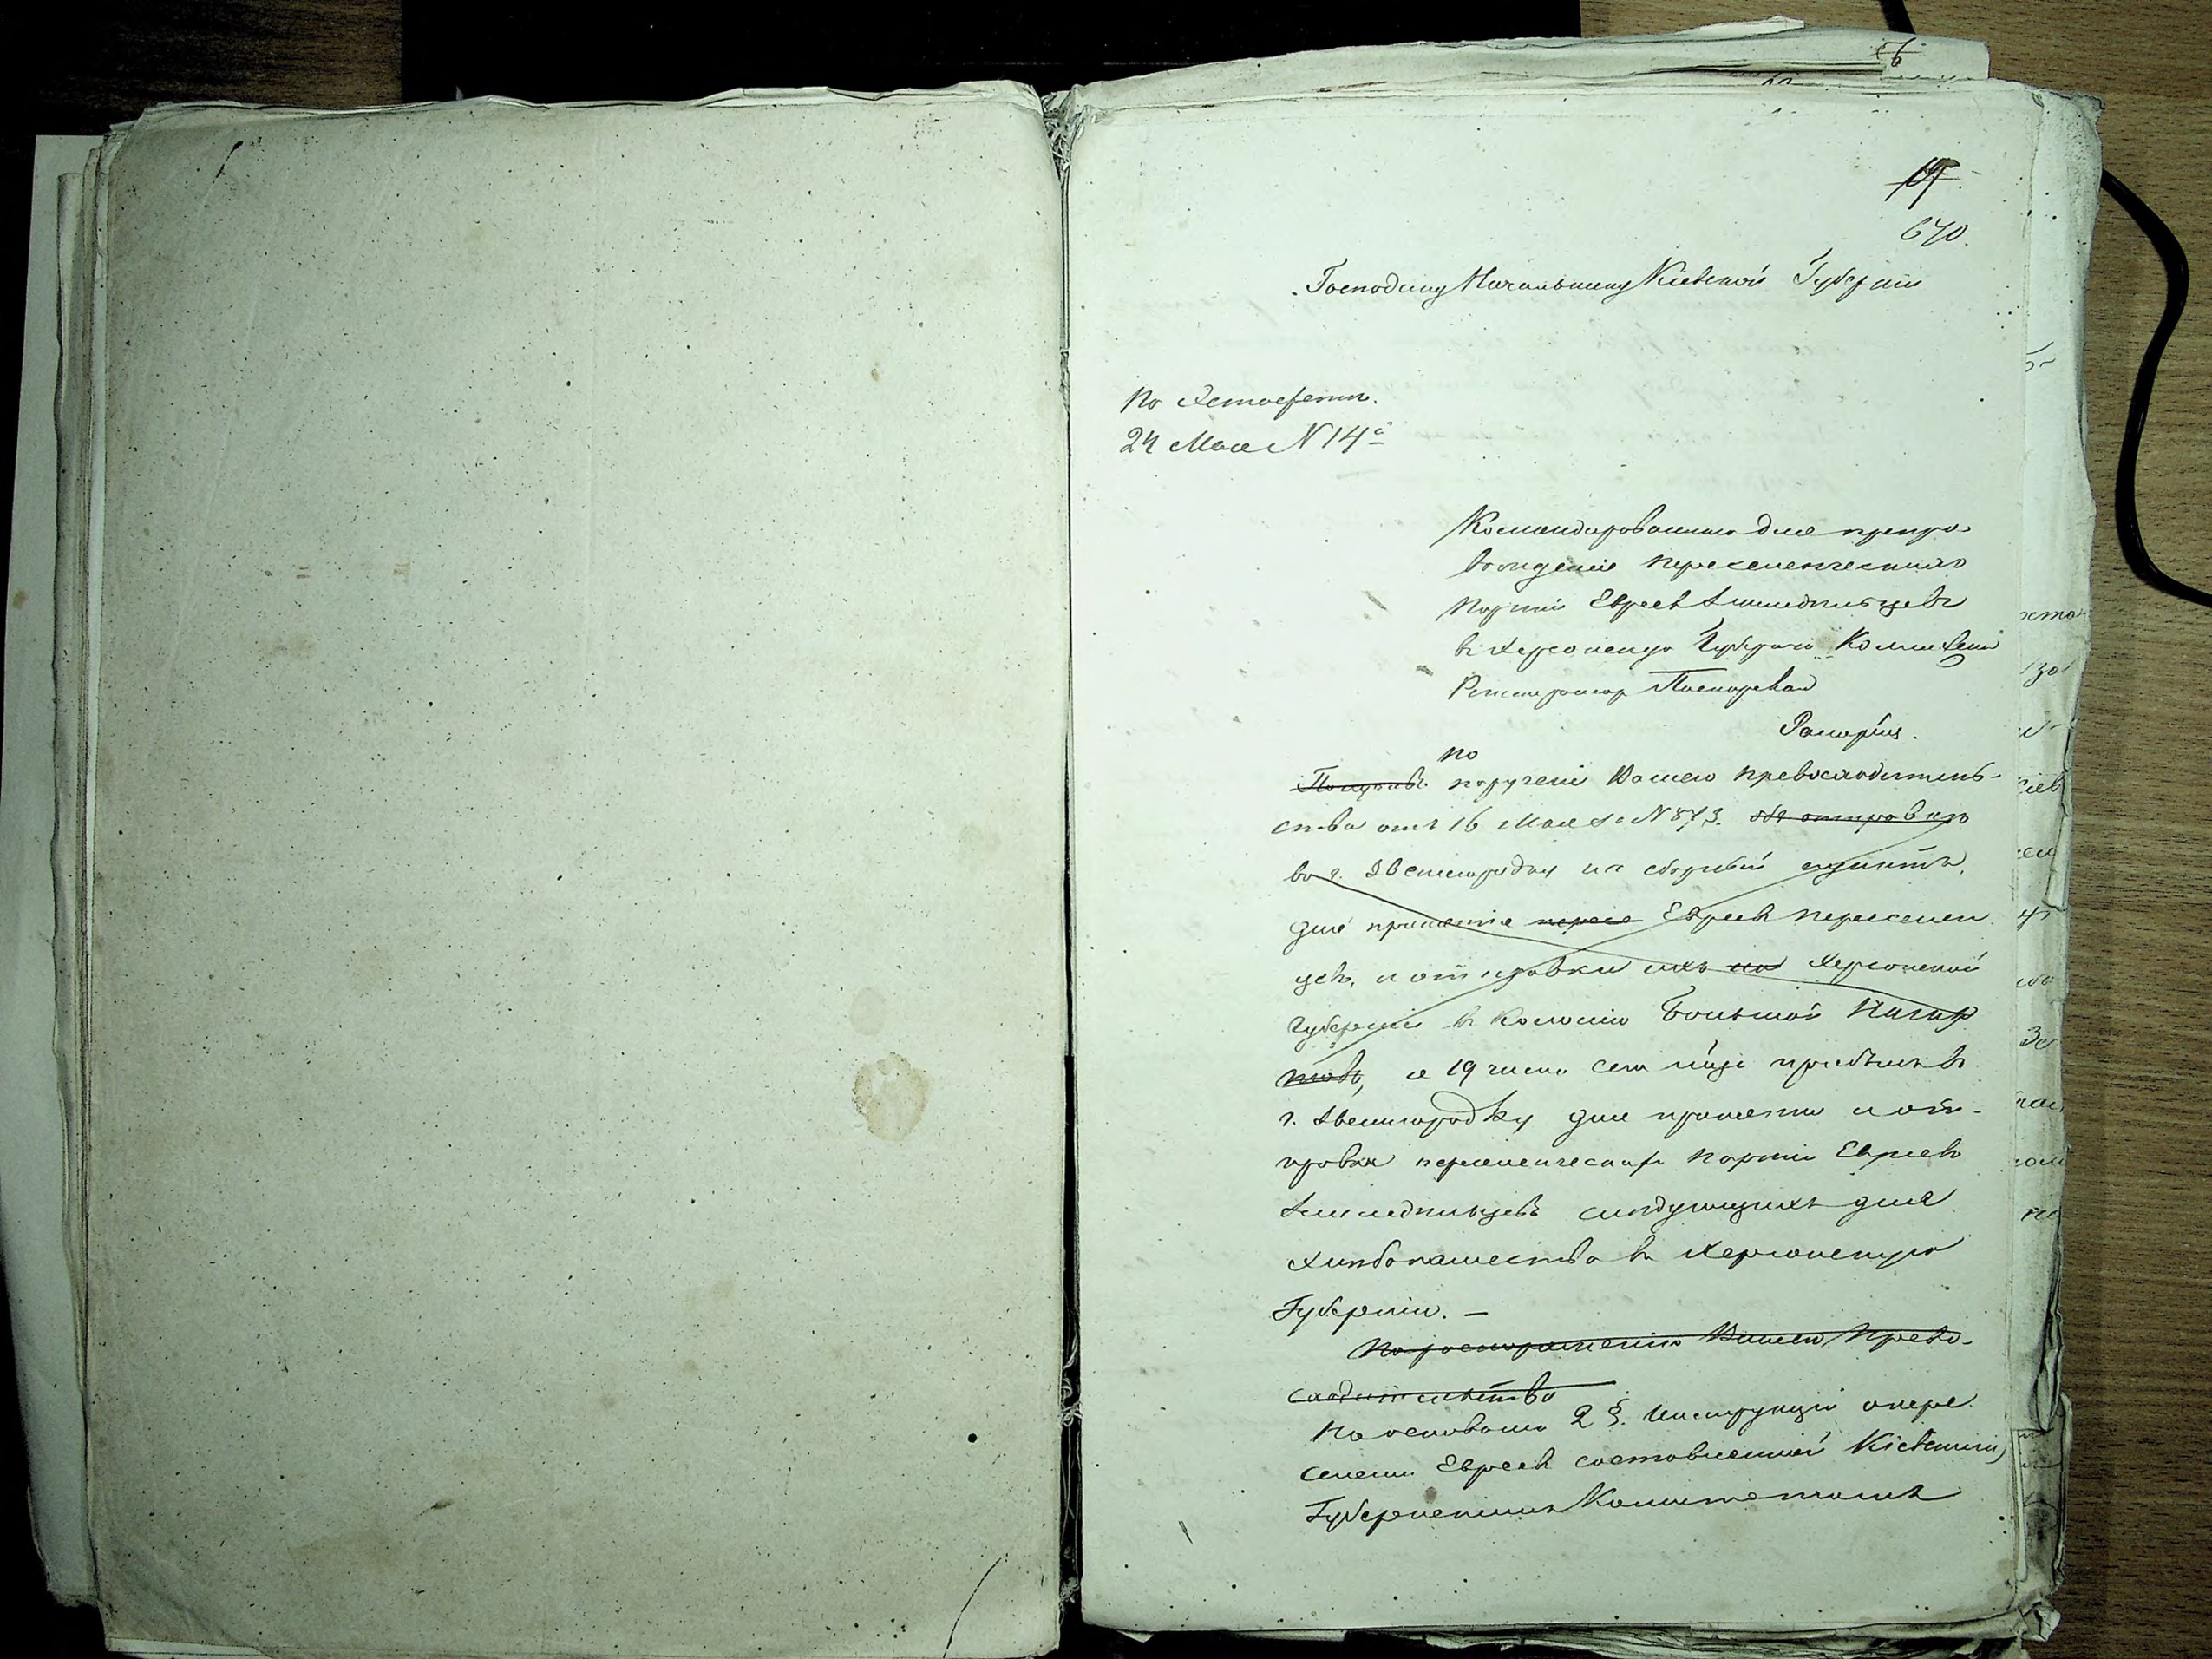 670.
Господину Начальнику Кіевской Губерніи
По Эстафетѣ.
24 Мая N 14й
Командированнаго для препро-
вожденія переселенческихъ
партій Евреевъ Земледѣльцевъ
въ Херсонскую Губернію Коллежскій
Регистраторъ
Рапортъ.
по
Получивъ порученіе Вашего Превосходитель-
ства отъ 16 Мая за N 873. объ отправкѣ
въ г. Звенигородку на сборный пунктъ,
для принятія пересе Евреевъ переселен
цевъ, и отправки ихъ Херсонской
Губерніи въ Колонію Большой Нагар
товъ, я 19 числа сего мца прибылъ въ
г. Звенигородку для принятія и от-
правки переселенческихъ партій Евреевъ
Земледѣльцевъ слѣдующихъ для
хлѣбопашества въ Херсонскую
Губернію. —
По распоряженію Вашего Прево-
сходительства
На основаніи 2 §. Инструкціи о пере
селеніи Евреевъ составленной Кіевскимъ
Губернскимъ Комитетомъ